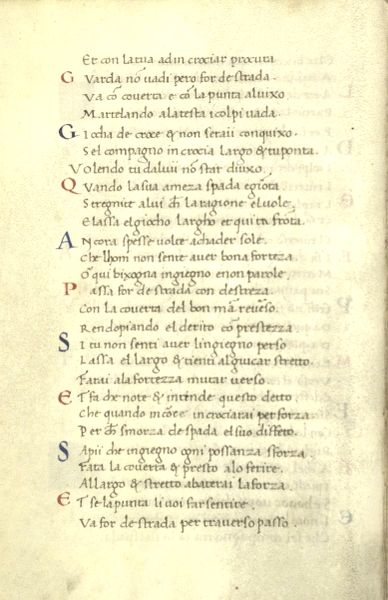 Et con la tua ad in crociar procura
Guarda nō uadi pero for de strada.
Va cō coverta e cō la punta al uixo
Martelando a la testa i colpi uada.
Giocha de croce & non serai conquixo.
Se'l compagno in crocia largo & tu ponta.
Volendo tu da lui nō star diuixo.
Quando la sua a meza spada e gionta
Stregnit alui ch̄ la ragione el uole,
E lassa el giocho largho et qui ta frōta.
Ancora spesse uolte achader sole.
Che l'hom non sente auer bona forteza
Or qui bixogna ingiegno e non parole.
Passa for de strada con destreza.
Con la couerta del bon mā reuerso.
Rendopiando el derito cō prestezza
Se tu non senti auer l'ingiegno perso
Lassa el largo & tienti al giucar stretto.
Farai a la fortezza mutar uerso.
Et fa che note & intende questo detto
Che quando in croce in crociarai per forza
Per ch̄ smorza de spada el suo diffeto.
Sapii che ingiegno ogni possanza sforza.
Fata la couerta & presto a lo ferire.
Al largo & stretto abaterai la forza.
Et se la punta li uoi far sentire.
Va for de strada per trauerso passo.